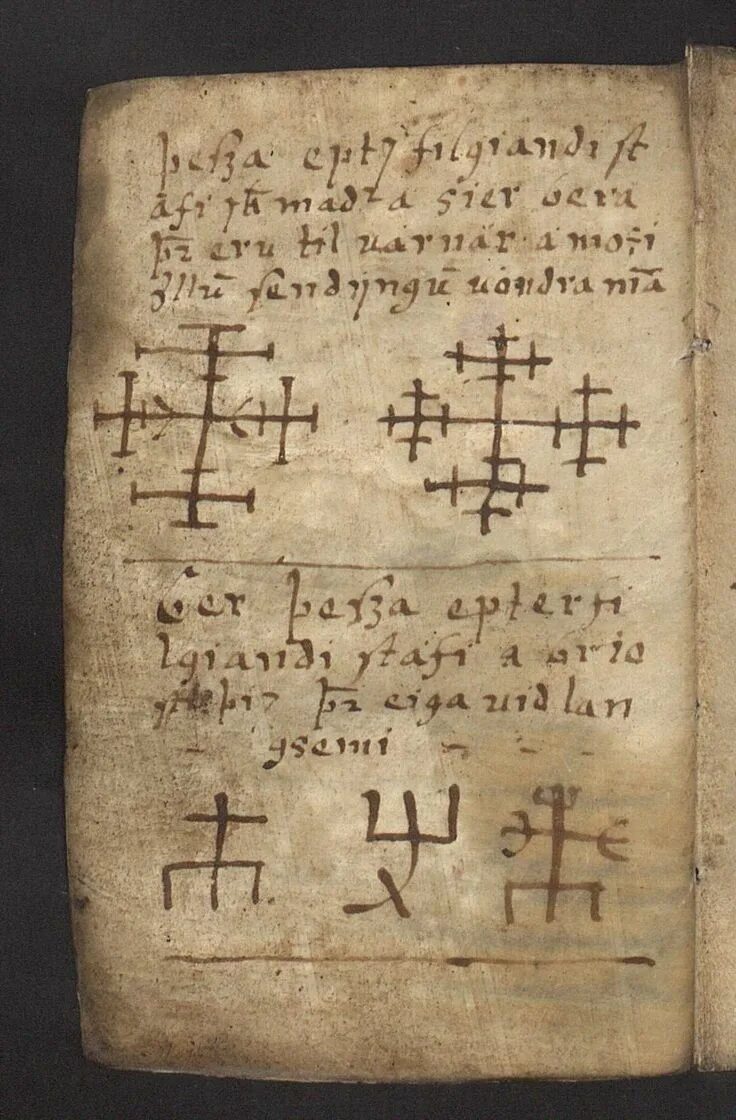 þessa epter filgiandi st
afi skal madr a sier bera
þr eru til varnar a moti
ỏllū sendijngū vondra mā
Ber þessa epterfi
lgiandi stafi a brio
þr eiga vid lan
gsemi